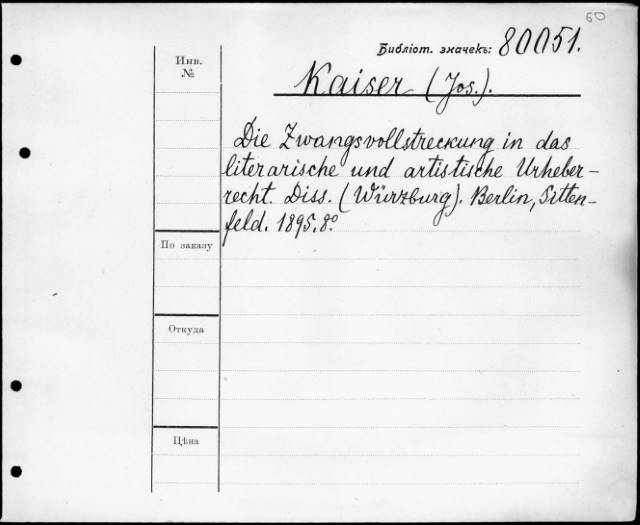 60
Библіот. значекъ: 80051.
Инв.
№
Kaiser (Jos.).
Die Zwangsvollstreckung in das
literarische und artistische Urheber-
recht. Diss. (Würzburg). Berlin, Sitten-
feld. 1895. 8°.
По заказу
Откуда
Цѣна